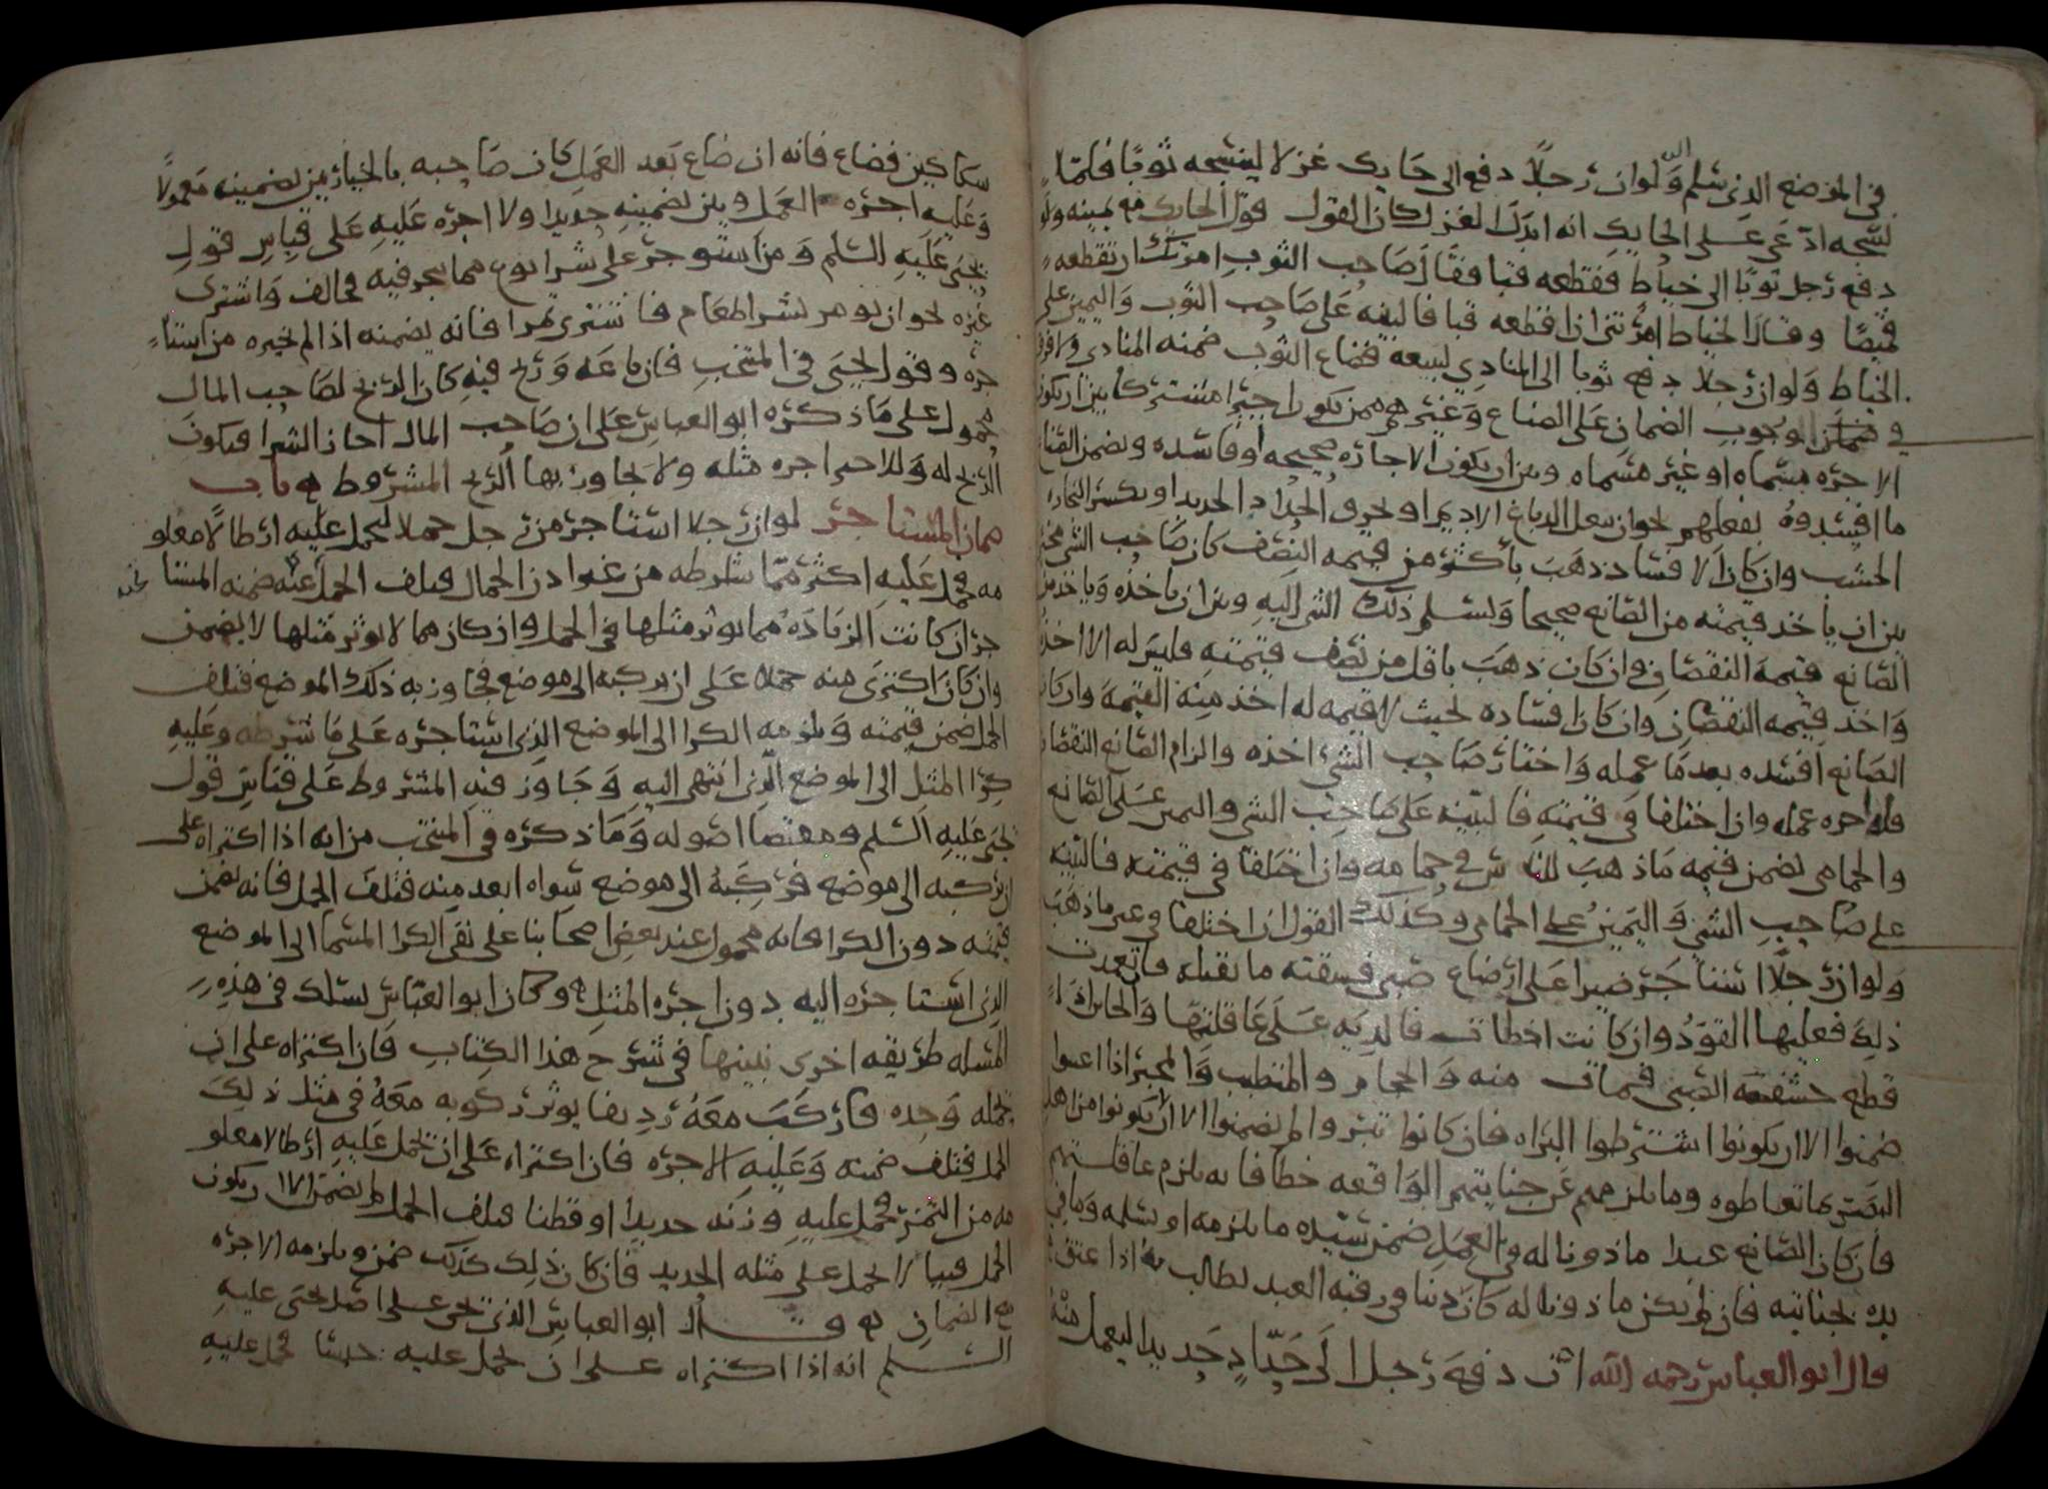 في الموضع الذي سلم اليه ولو ان رجلا دفع الى حايك غزلا لينسجه ثوبا فلما
نسجه ادعى على الحايك انه ابدل الغزل كان القول قول الحايك مع يمينه ولو
دفع رجل ثوبا الى خياط فقطعه قبا فقال صاحب الثوب امرتك ان تقطعه
قميصا وقال الخياط امرتني ان اقطعه قبا فالبينه على صاحب الثوب واليمين على
الخياط ولو ان رجلا دفع ثوبا الى المنادي ليبيعه فضاع الثوب ضمنه المنادي ولا فرق
في وجوب الضمان على الصناع وغيرهم ممن يكون اجيرا مشتركا بين ان يكون
الاجره مسماه او غير مسماه وبين ان يكون الاجاره صحيحه او فاسده ويضمن الصناع
ما افسدوه بفعلهم نحو ان يفعل الدباغ الاديم او يحرق الحداد الحديد او يكسر النجار
الخشب وان كان الافساد ذهب باكثر من قيمه النصف كان صاحب الشي مخير
بين ان ياخذ قيمته من الصانع صحيحا ويسلم ذلك الشي اليه وبين ان ياخذه وياخذ من
الصانع قيمة النقصان وان كان ذهب باقل من نصف قيمته فليس له الا اخذه
واخذ قيمه النقصان وان كان افساده بحيث لا قيمه له اخذ منه القيمة وان كان
الصانع افسده بعد ما عمله واختار صاحب الشي اخذه والزام الصانع النقصان
فله اجره عمله وان اختلفا في قيمته فالبينه على صاحب الشي واليمين على الصانع
والحمامي يضمن قيمه ما ذهب للناس في حمامه وان اختلفا في قيمته فالبينه
على صاحب الشي واليمين على الحمامي وكذلك القول ان اختلفا في عين ما ذهب
ولو ان رجلا استاجر ضيرا على ارضاع صبي فسقته ما يقتله فان تعمدت
ذلك فعليها القود وان كانت اخطات فالديه على عاقلتها والخاتن اذا
قطع حشفة الصبي فمات منه والحجام والمتطبب والمجبر اذا اعنتوا
ضمنوا الا ان يكونوا اشترطوا البراه فان كانوا تبروا لم يضمنوا الا ان لا يكونوا من اهل
البصر بما تعاطوه وما يلزمهم عن جنايتهم الواقعه خطا فانه يلزم عاقلتهم
فان كان الصانع عبدا ماذونا له في العمل ضمن سيده ما يلزمه او يسلمه وما في
يده بجنايته فان لم يكن ماذونا له كان دينا في رقبه العبد يطالب به اذا عتق
قال ابو العباس رحمه الله ان دفع رجل الى حداد حديدا ليعمل منه
سكاكين فضاع فانه ان ضاع بعد العمل كان صاحبه بالخيار بين تضمينه معمولا
وعليه اجره العمل وبين تضمينه حديدا ولا اجره عليه على قياس قول
يحيى عليه السلم ومن استوجر على شرا نوع مما يتجر فيه فخالف واشترى
غيره نحو ان يومر بشرا طعام فاشترى تمرا فانه يضمنه اذا لم يخيره من استا
جره وقول يحيى في المنتخب فان باعه وربح فيه كان الربح لصاحب المال
محمول على ما ذكره ابو العباس على ان صاحب المال اجاز الشرا فيكون
الربح له وللاجير اجره مثله ولا يجاوز بها الربح المشروط باب
ضمان المستاجر لو ان رجلا استاجر من رجل جملا ليحمل عليه ارطالا معلو
مه فحمل عليه اكثر مما شارطه من غير اذن الجمال فتلف الحمل عنه ضمنه المستا
جر ان كانت الزيادة مما يوثر مثلها في الجمل وان كان مما لا يوثر مثلها لا يضمن
وان كان اكترى منه جملا على ان يركبه الى موضع فجاوز به ذلك الموضع فتلف
الجمل ضمن قيمته ويلزمه الكرا الى الموضع الذي استاجره على ما شرطه وعليه
كرا المثل الى الموضع الذي انتهى اليه وجاوز فيه المشروط على قياس قول
يحيى عليه السلم ومقتضا اصوله وما ذكره في المنتخب من انه اذا اكتراه على
ان يركبه الى موضع فركبه الى موضع سواه ابعد منه فتلف الجمل فانه يضمن
قيمته دون الكرا فانه محمول عند بعض اصحابنا على نفي الكرا المسما الى الموضع
الذي استاجره اليه دون اجره المثل وكان ابو العباس يسلك في هذه
المسله طريقه اخرى نبينها في شرح هذا الكتاب فان اكتراه على ان
يحمله وحده فاركب معه رديفا يوثر ركوبه معه في مثل ذلك
الجمل فتلف ضمنه وعليه الاجره فان اكتراه على ان يحمل عليه ارطالا معلو
مه من التمر فحمل عليه وزنه حديدا او قطنا فتلف الجمل لم يضمن الا ان يكون
الجمل فتيا لا يحمل على مثله الحديد فان كان ذلك كذلك ضمن ويلزمه الاجره
مع الضمان وقال ابو العباس الذي يجي على اصل يحيى عليه
السلم انه اذا اكتراه على ان يحمل عليه جنسا فحمل عليه